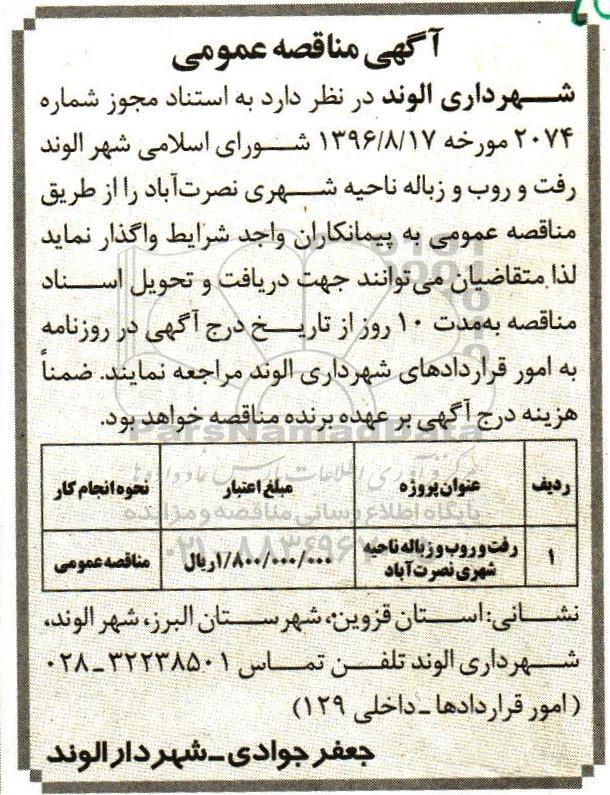 آگهی مناقصه عمومی
شهرداری الوند در نظر دارد به استناد مجوز شماره
۲۰۷۴ مورخه ۱۳۹۶/۸/۱۷ شورای اسلامی شهر الوند
رفت و روب و زباله ناحیه شهری نصرت‌آباد را از طریق
مناقصه عمومی به پیمانکاران واجد شرایط واگذار نماید
لذا متقاضیان می‌توانند جهت دریافت و تحویل اسناد
مناقصه به‌مدت ۱۰ روز از تاریخ درج آگهی در روزنامه
به امور قراردادهای شهرداری الوند مراجعه نمایند. ضمناً
هزینه درج آگهی بر عهده برنده مناقصه خواهد بود.
ParsNamadData
ردیف عنوان پروژه مبلغ اعتبار نحوه انجام کار
پایگاه اطلاع رسانی مناقصه و مزایده
۱ رفت و روب و زباله ناحیه شهری نصرت‌آباد ۱/۸۰۰/۰۰۰/۰۰۰ریال مناقصه عمومی
نشانی: استان قزوین، شهرستان البرز، شهر الوند،
شهرداری الوند تلفن تماس ۳۲۲۳۸۵۰۱-۰۲۸
(امور قراردادها-داخلی ۱۲۹)
جعفر جوادی-شهردار الوند